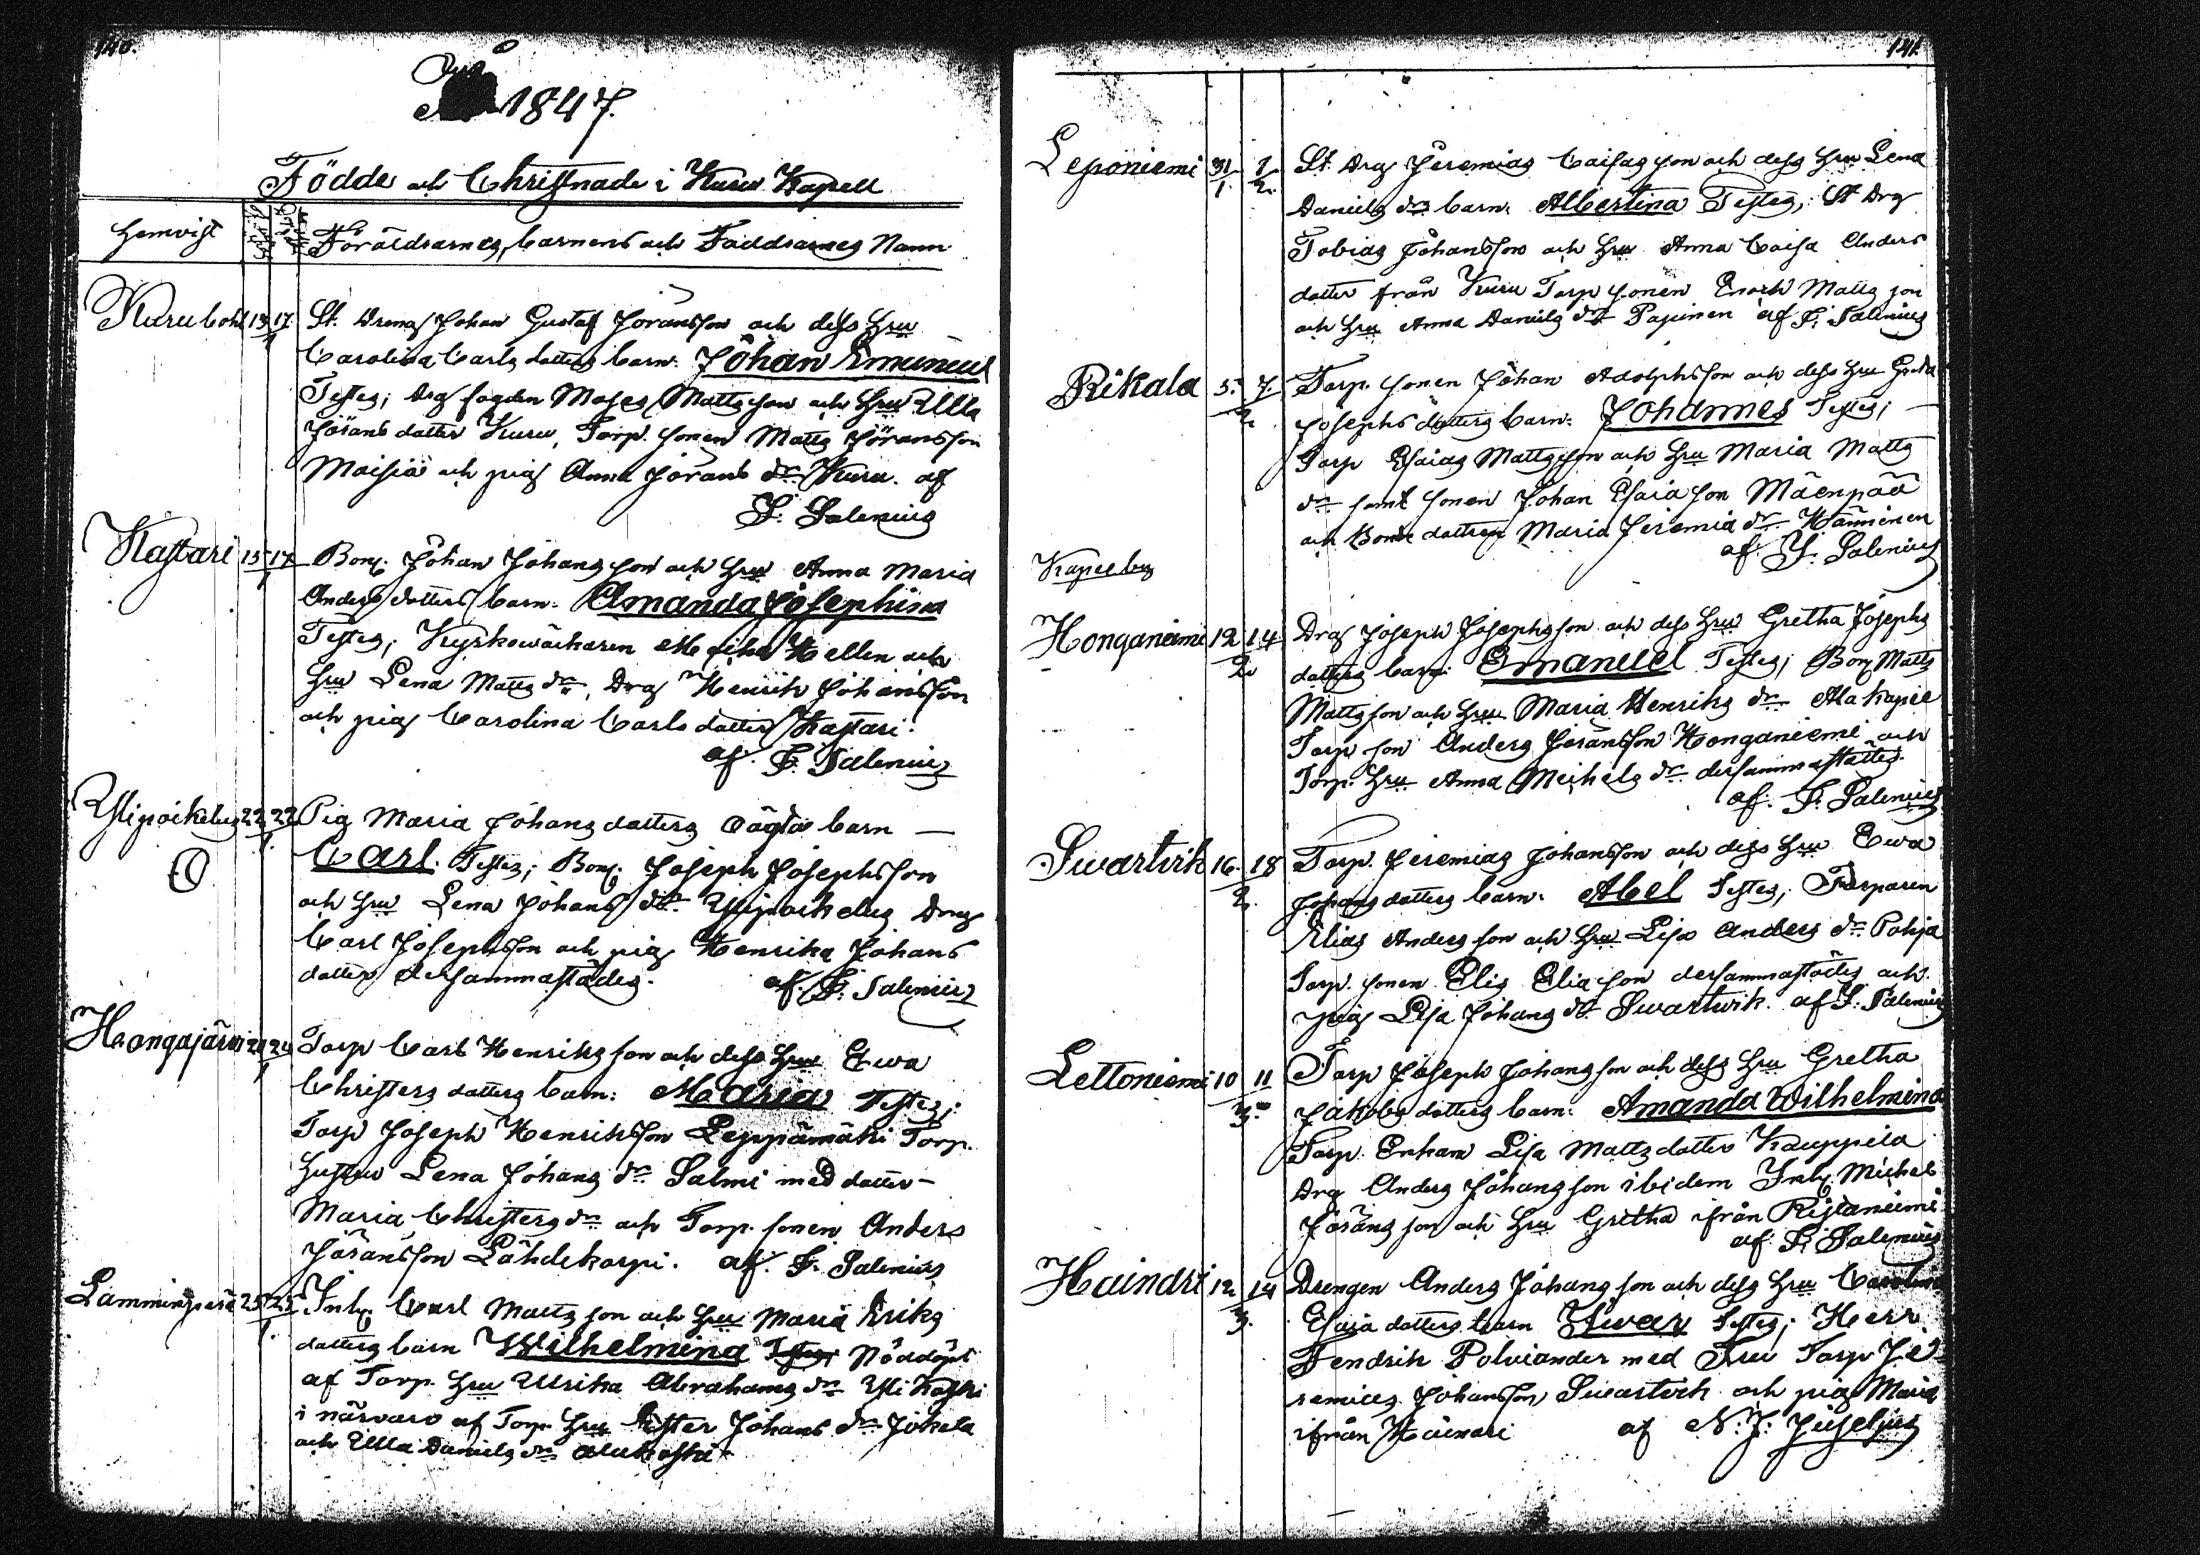 140.
År
1847.
Födde och Christnade i Kuru Kapell
Hemvist
Föräldrarnes, barnens och Faddrarnes Namn
Kurubohl 13 17/1 St. Dreng Johan Gustaf Göransson och dess hru
Carolina Carls dotters barn: Johan Emanuel
Testes; Drg fogden Moses Mattsson och hru Ulla
Görans dotter Kuru, Torp. sonen Matts Göransson
Moisiö och pig Anna Görans dr Kuru. af
F. Salenius
Kastari 15 17/1 Bond. Johan Johansson och hru Anna Maria
Anders dotters barn: Amanda Josephina
Testes; Kyrkowäcktaren Hellen och
hru Lena Matts dr, Drg Henrik Johansson
och pig Carolina Carls dotter Kastari.
af F. Salenius
Ylipoikelus 22 22/1 Pig Maria Johans dotters oägta barn —
Carl. Testes; Bond. Joseph Josephsson
och hru Lena Johans dr Ylipoikelus Drng
Carl Josephsson och pig Henrika Johans
dotter dersammastädes. af F. Salenius
Hongajärvi 21 24/1 Torp Carl Henriksson och dess hru Ewa
Christers dotters barn: Maria Testes;
Torp Joseph Henriksson Leppämäki Torp.
hustru Lena Johans dr Salmi med dotter
Maria Christers dr och Torp. sonen Anders
Göransson Lähdekorpi. af F. Salenius
Lamminperä 25 25/1 Inh. Carl Mattsson och hru Maria Eriks
dotters barn Wilhelmina Testes; Nöddöpt
af Torp. hru Ulrika Abrahams dr Yli
i närvaro af Torp. hru Ester Johans dr Jokela
och Ulla Daniels dr
141.
Leponiemi 31/1 1/2 St. Drg Jeremias Caisasson och dess hru Lena
Daniels dr barn: Albertina Testes; St Drg
Tobias Johansson och hru Anna Caisa Anders
dotter från Kuru Torp sonen Enock Mattsson
och hru Anna Daniels dr Papinen af F. Salenius
Rikala 5. 7./2 Torp. sonen Johan Adolphsson och dess hru Greta
Josephs dotters barn: Johannes Testes; —
Torp Esaias Mattsson och hru Maria Matts
dr samt sonen Johan Esaiasson Mäenpää
och Bonde dottren Maria Jeremias dr Hänninen
af F. Salenius
Kapelbys
Honganiemi 12 14/2 Drg Joseph Josephsson och dess hru Gretha Josephs
dotters barn: Emanuel Testes; Bond. Matts
Mattsson och hru Maria Henriks dr Ala
Torp son Anders Göransson Honganiemi och
Torp. hru Anna Michels dr dersammastädes.
af: F. Salenius
Swartvik 16. 18/2. Torp. Jeremias Johansson och dess hru Ewa
Johans dotters barn: Abel Testes; Torparen
Elias Andersson och hru Lisa Anders dr Pohja
Torp. sonen Elis Eliasson dersammastädes och
pig Lisa Johans dr Swartwik. af F. Salenius
Lettoniemi 10 11/3. Torp Joseph Johansson och dess hru Gretha
Jakobs dotters barn: Amanda Wilhelmina
Torp. Enkan Lisa Matts dotter Kauppila
Drg Anders Johansson ibidem Inh. Michel
Göransson och hru Gretha ifrån Ristaniemi
af F. Salenius
Haindri 12 14/3. Drengen Anders Johansson och dess hru Carolina
Esaia dotters barn Iwar Testes; Herr
Fendrik Polviander med Fru Torp. Je
remias Johansson Swartvik och pig Maria
ifrån af N. J.